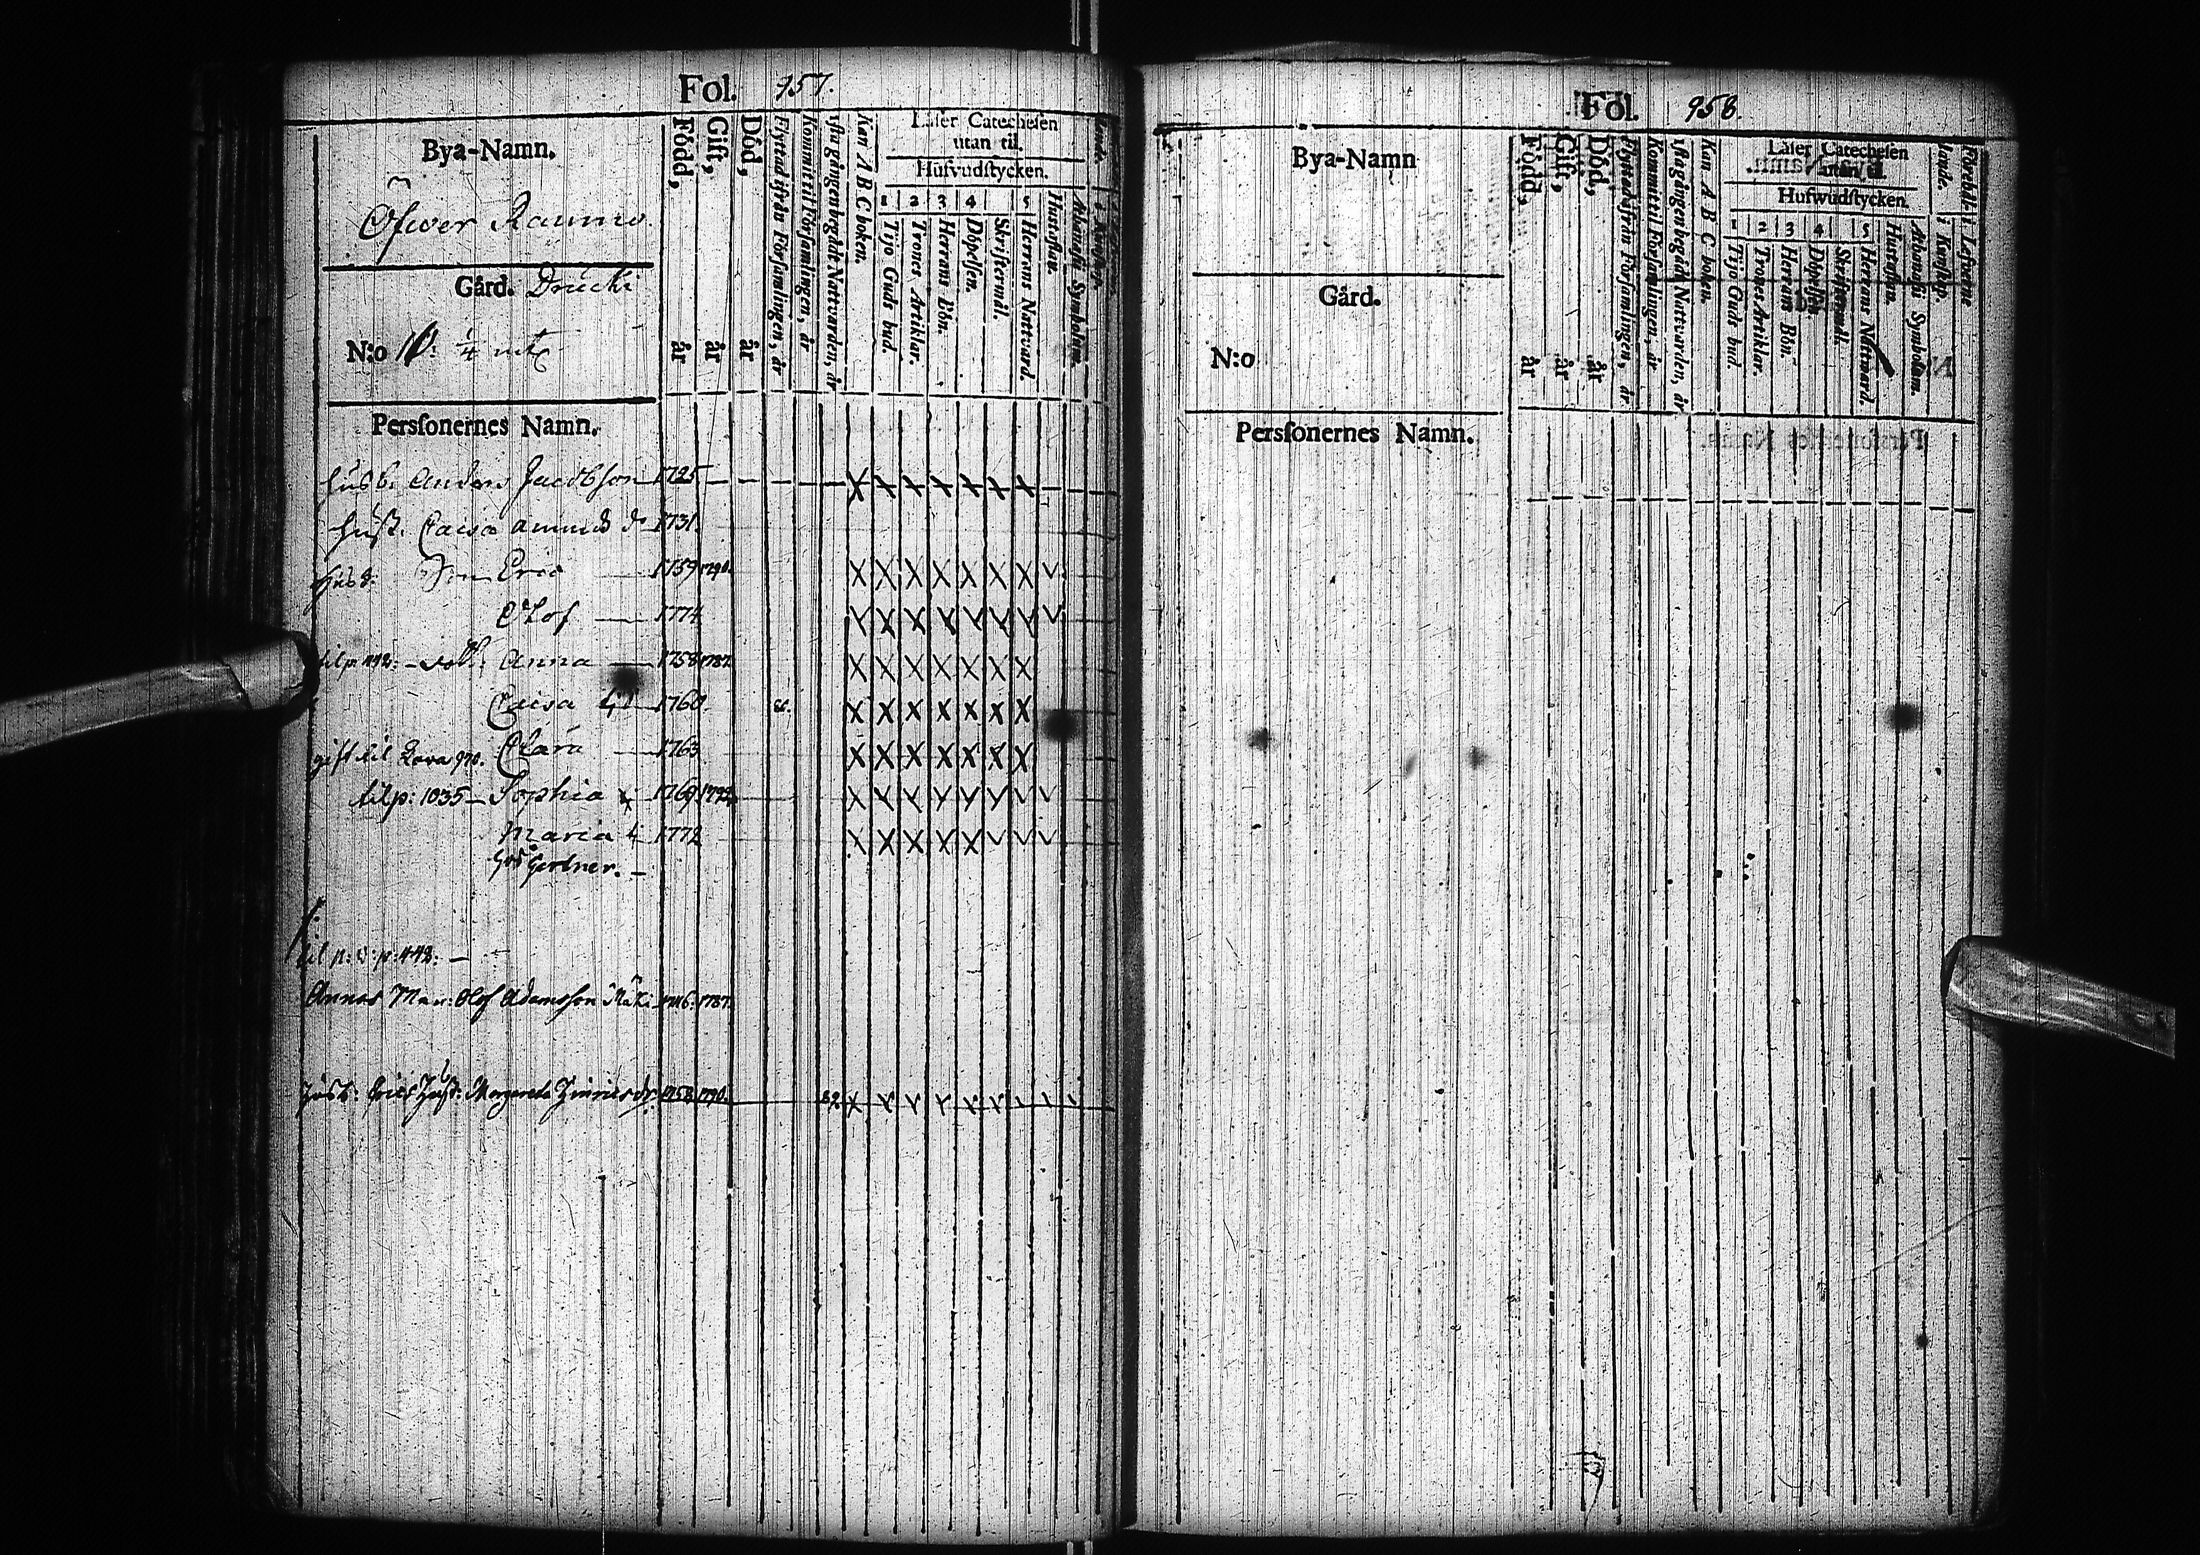 Fol. 957.
Bya-Namn.
Öfwer Raumo.
Gård. Drucki
N:o 10: 1/4 mtl
Född, år
Gift, år
Död, år
Flyttad ifrån Församlingen, år
Kommit til Församlingen, år
1sta gången begådt Nattvarden, år
Kan A B C boken.
Läser Catechesen
utan til.
Hufvudstycken.
1 2 3 4 5
Tijo Guds bud.
Trones Artiklar.
Herrans Bön.
Döpelsen.
Skriftermål.
Herrans Nattvard.
Hustaflan.
Athanasii Symbolum.
Perssonernes Namn.
Husb. Anders Jacobsson 1725
Hust. Caisa 1731.
Husb: Son Eric 1759 1790.
Olof 1774
til p: 442: dott: Anna 1758 1787.
Caisa 1760.
gift til Kova 970. Clara 1763
til p: 1035 Sophia 1769 1792
Maria 1772
hos Gertner.
til p: 442:
Annas Man: Olof Adamsson 1787.
Husb: Erics Hust: Margareta 1758 1790. 82
Fol. 958.
Bya-Namn
Gård.
N:o
Född, år
Gift, år
Död, år
Flyttad ifrån Församlingen, år
Kommit til Församlingen, år
1sta gången begådt Nattvarden, år
Kan A B C boken.
Läser Catechesen
utan til.
Hufwudstycken.
1 2 3 4 5
Tijo Guds bud.
Trones Artiklar.
Herrans Bön.
Döpelsen.
Skriftermål.
Herrans Nattvard.
Hustaflan.
Athanasii Symbolum.
Perssonernes Namn.